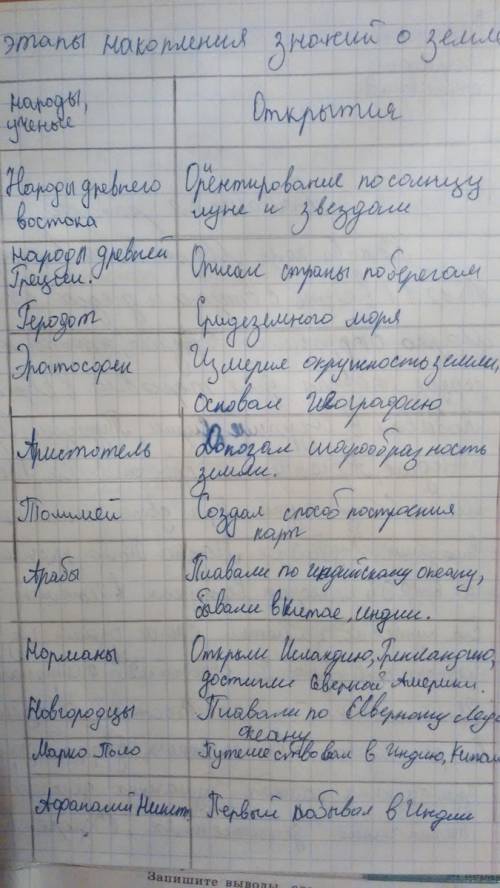 этапы накопления знаний о земле
народы,
ученые
Открытия
Народы древнего
востока
Орентирование по солнцу
луне и звездам
народы древней
Грецыи.
Описал страны по берегам
Геродот
Средеземного моря
Эратосфен
Измерил окружность земли,
основал географию
Аристотель
Доказал шарообразность
земли.
Толимей
Создал способ построения
карт
Арабы
Плавали по индийскому океану,
бывали в китае, индии.
Норманы
Открыли Исландию, Гренландию,
достигли Северной Америки.
Новгородцы
Плавали по Северному Ледо
океану
Марко Поло
Путешествовал в Индию, Китай
Афанасий Никит
Первый побывал в Индии
Запишите выводы